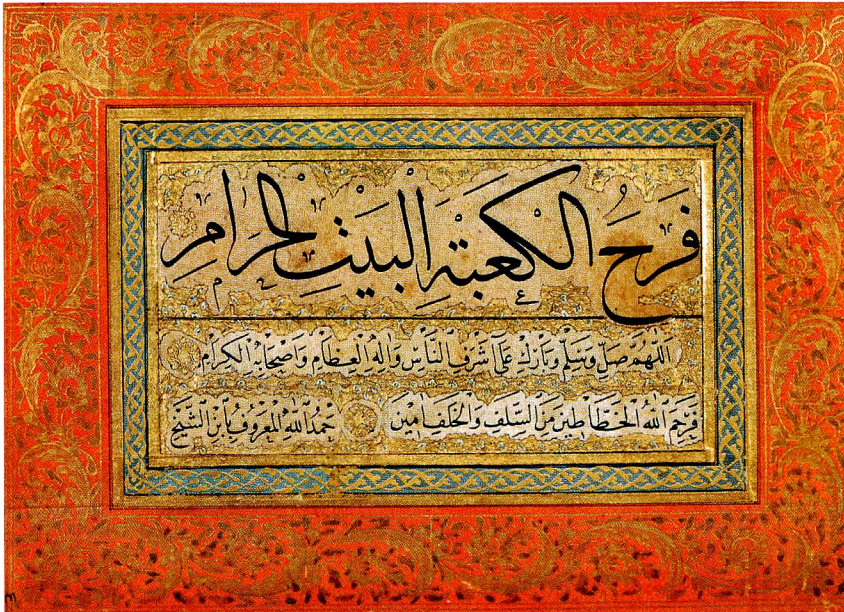 فَرَحُ الْكَعْبَةِ الْبَيْتِ الْحَرَامِ
اللهم صل وسلم وبارك على اشرف الناس واله العظام واصحابه الكرام
فرحم الله الخطاطين من السلف والخلف امين حمد الله المعروف بابن الشيخ